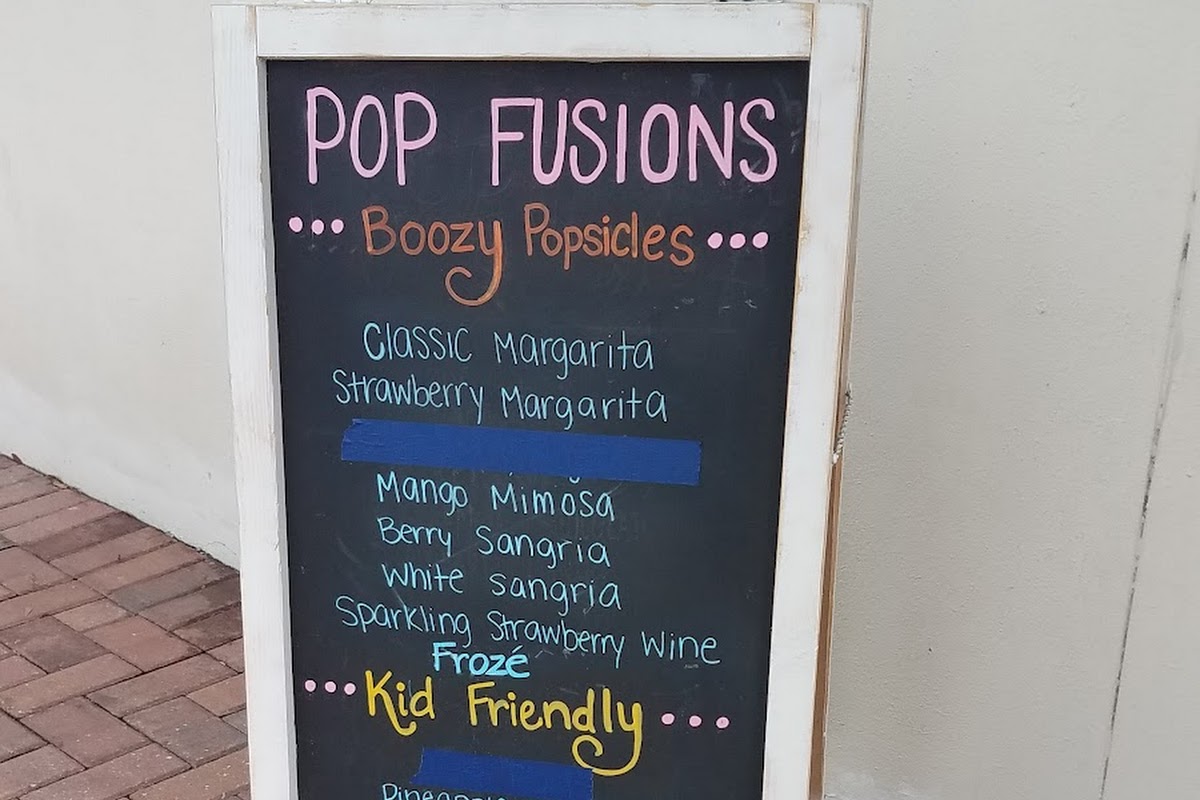 POP FUSIONS
Boozy Popsicles
Classic Margarita
Strawberry Margarita
Mango Mimosa
Berry Sangria
White Sangria
Sparkling Strawberry Wine
Frozé
Kid Friendly